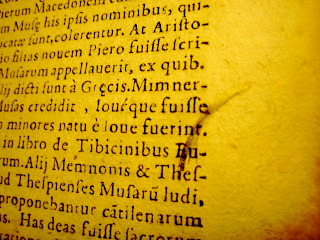 Pierum Macedonem
um Musę his ipsis nominibus, qui-
ocatæ sunt, colerentur. At Aristo-
io filias nouem Piero fuisse scri-
Musarum appellauerit, ex quib.
lij dicti sunt à Gręcis. Mimner-
Musas credidit, Iouéque fuisse
n minores natu è Ioue fuerint.
in libro de Tibicinibus Eu-
rum. Alij Memnonis & Thes-
ud Thespienses Musarū ludi,
proponebantur cātilenarum
s. Has deas fuisse sacrorum